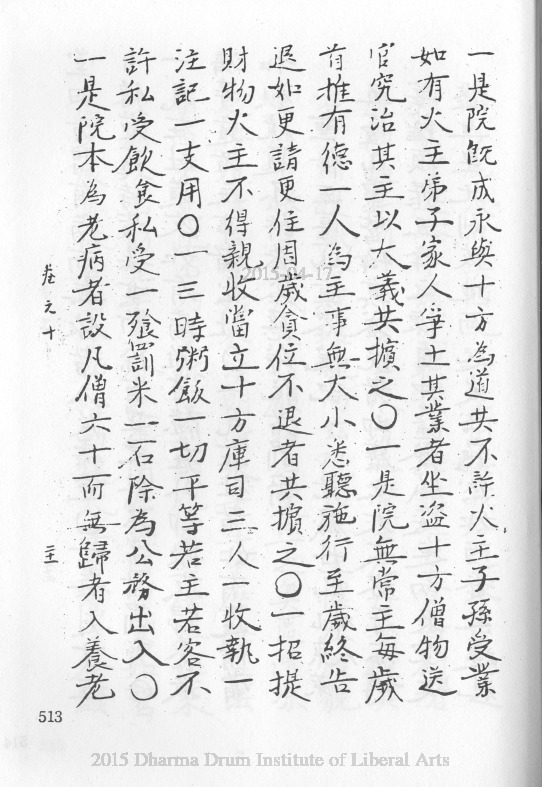 一是院既成永與十方為道共不許火主子孫受業
如有火主弟子家人爭土其業者坐盜十方僧物送
官究治其主以大義共擯之〇一是院無常主每歲
首推有德一人為主事無大小悉聽施行至歲終告
退如更請更住因歲貪位不退者共擯之〇一招提
財物火主不得親收當立十方庫司三人一收執一
注記一支用〇一三時粥飯一切平等若主若客不
許私受飲食私受一飡罰米一石除為公務出入〇
一是院本為老病者設凡僧六十而無歸者入養老
卷之十
主
513
2015-04-17
2015 Dharma Drum Institute of Liberal Arts